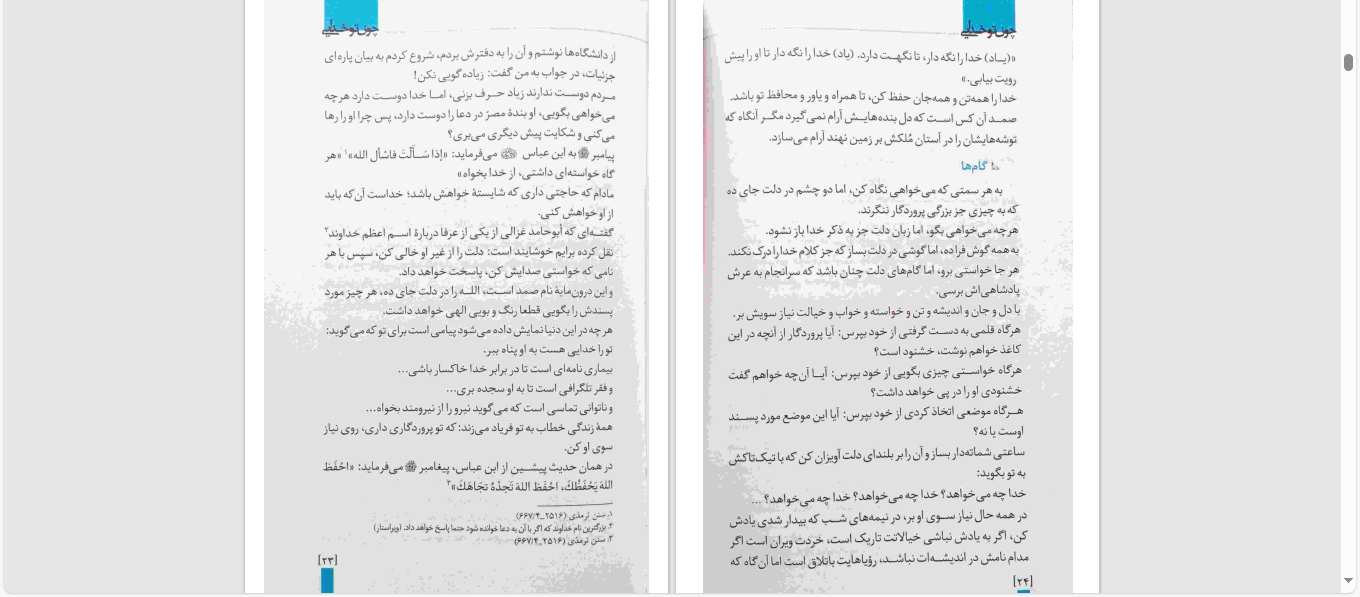 چون تو خدایی
از دانشگاه‌ها نوشتم و آن را به دفترش بردم، شروع کردم به بیان پاره‌ای
جزئیات، در جواب به من گفت: زیاده‌گویی نکن!
مـردم دوسـت ندارند زیاد حـرف بزنی، امـا خدا دوسـت دارد هرچه
می‌خواهی بگویی، او بندهٔ مصرّ در دعا را دوست دارد، پس چرا او را رها
می‌کنی و شکایت پیش دیگری می‌بری؟
پیامبر ﷺ به ابن عباس می‌فرماید: «إذا سَـأَلْتَ فاسْألِ الله»۱ «هر
گاه خواسته‌ای داشتی، از خدا بخواه»
مادام که حاجتی داری که شایستهٔ خواهش باشد؛ خداست آن‌که باید
از او خواهش کنی.
گفتـه‌ای که أبوحامد غزالی از یکی از عرفا دربارهٔ اسـم اعظم خداوند۲
نقل کرده برایم خوشایند است: دلت را از غیر او خالی کن، سپس با هر
نامی که خواستی صدایش کن، پاسخت خواهد داد.
و این درون‌مایهٔ نام صمد اسـت، اللـه را در دلت جای ده، هر چیز مورد
پسندش را بگویی قطعا رنگ و بویی الهی خواهد داشت.
هر چه در این دنیا نمایش داده می‌شود پیامی است برای تو که می‌گوید:
تو را خدایی هست به او پناه ببر.
بیماری نامه‌ای است تا در برابر خدا خاکسار باشی...
و فقر تلگرافی است تا به او سجده بری...
و ناتوانی تماسی است که می‌گوید نیرو را از نیرومند بخواه...
همهٔ زندگی خطاب به تو فریاد می‌زند: که تو پروردگاری داری، روی نیاز
سوی او کن.
در همان حدیث پیشـین از ابن عباس، پیغامبر ﷺ می‌فرماید: «احْفَظِ
اللهَ یَحْفَظْكَ، احْفَظِ اللهَ تَجِدْهُ تجَاهَكَ»۳
۱. سنن ترمذی (۲۵۱۶_۶۶۷/۴)
۲. بزرگترین نام خداوند که اگر با آن به دعا خوانده شود حتما پاسخ خواهد داد. (ویراستار)
۳. سنن ترمذی (۲۵۱۶_۶۶۷/۴)
[۲۳]
چون تو خدایی
«(یـاد) خدا را نگه دار، تا نگهـت دارد. (یاد) خدا را نگه دار تا او را پیش
رویت بیابی.»
خدا را همه‌تن و همه‌جان حفظ کن، تا همراه و یاور و محافظ تو باشد.
صمـد آن کس اسـت که دل بنده‌هایـش آرام نمی‌گیرد مگـر آنگاه که
توشه‌هایشان را در آستان مُلکش بر زمین نهند آرام می‌سازد.
گام‌ها
به هر سمتی که می‌خواهی نگاه کن، اما دو چشم در دلت جای ده
که به چیزی جز بزرگی پروردگار ننگرند.
هرچه می‌خواهی بگو، اما زبان دلت جز به ذکر خدا باز نشود.
به همه گوش فرا ده، اما گوشی در دلت بساز که جز کلام خدا را درک نکند.
هر جا خواستی برو، اما گام‌های دلت چنان باشد که سرانجام به عرش
پادشاهی‌اش برسی.
با دل و جان و اندیشه و تن و خواسته و خواب و خیالت نیاز سویش بر.
هرگاه قلمی به دسـت گرفتی از خود بپرس: آیا پروردگار از آنچه در این
کاغذ خواهم نوشت، خشنود است؟
هرگاه خواسـتی چیزی بگویی از خود بپرس: آیـا آن‌چه خواهم گفت
خشنودی او را در پی خواهد داشت؟
هـرگاه موضعی اتخاذ کردی از خود بپرس: آیا این موضع مورد پسـند
اوست یا نه؟
ساعتی شماته‌دار بساز و آن را بر بلندای دلت آویزان کن که با تیک‌تاکش
به تو بگوید:
خدا چه می‌خواهد؟ خدا چه می‌خواهد؟ خدا چه می‌خواهد؟ ...
در همه حال نیاز سـوی او بر، در نیمه‌های شـب که بیدار شدی یادش
کن، اگر به یادش نباشی خیالاتت تاریک است، خردت ویران است اگر
مدام نامش در اندیشـه‌ات نباشـد، رؤیاهایت باتلاق است اما آن‌گاه که
[۲۴]